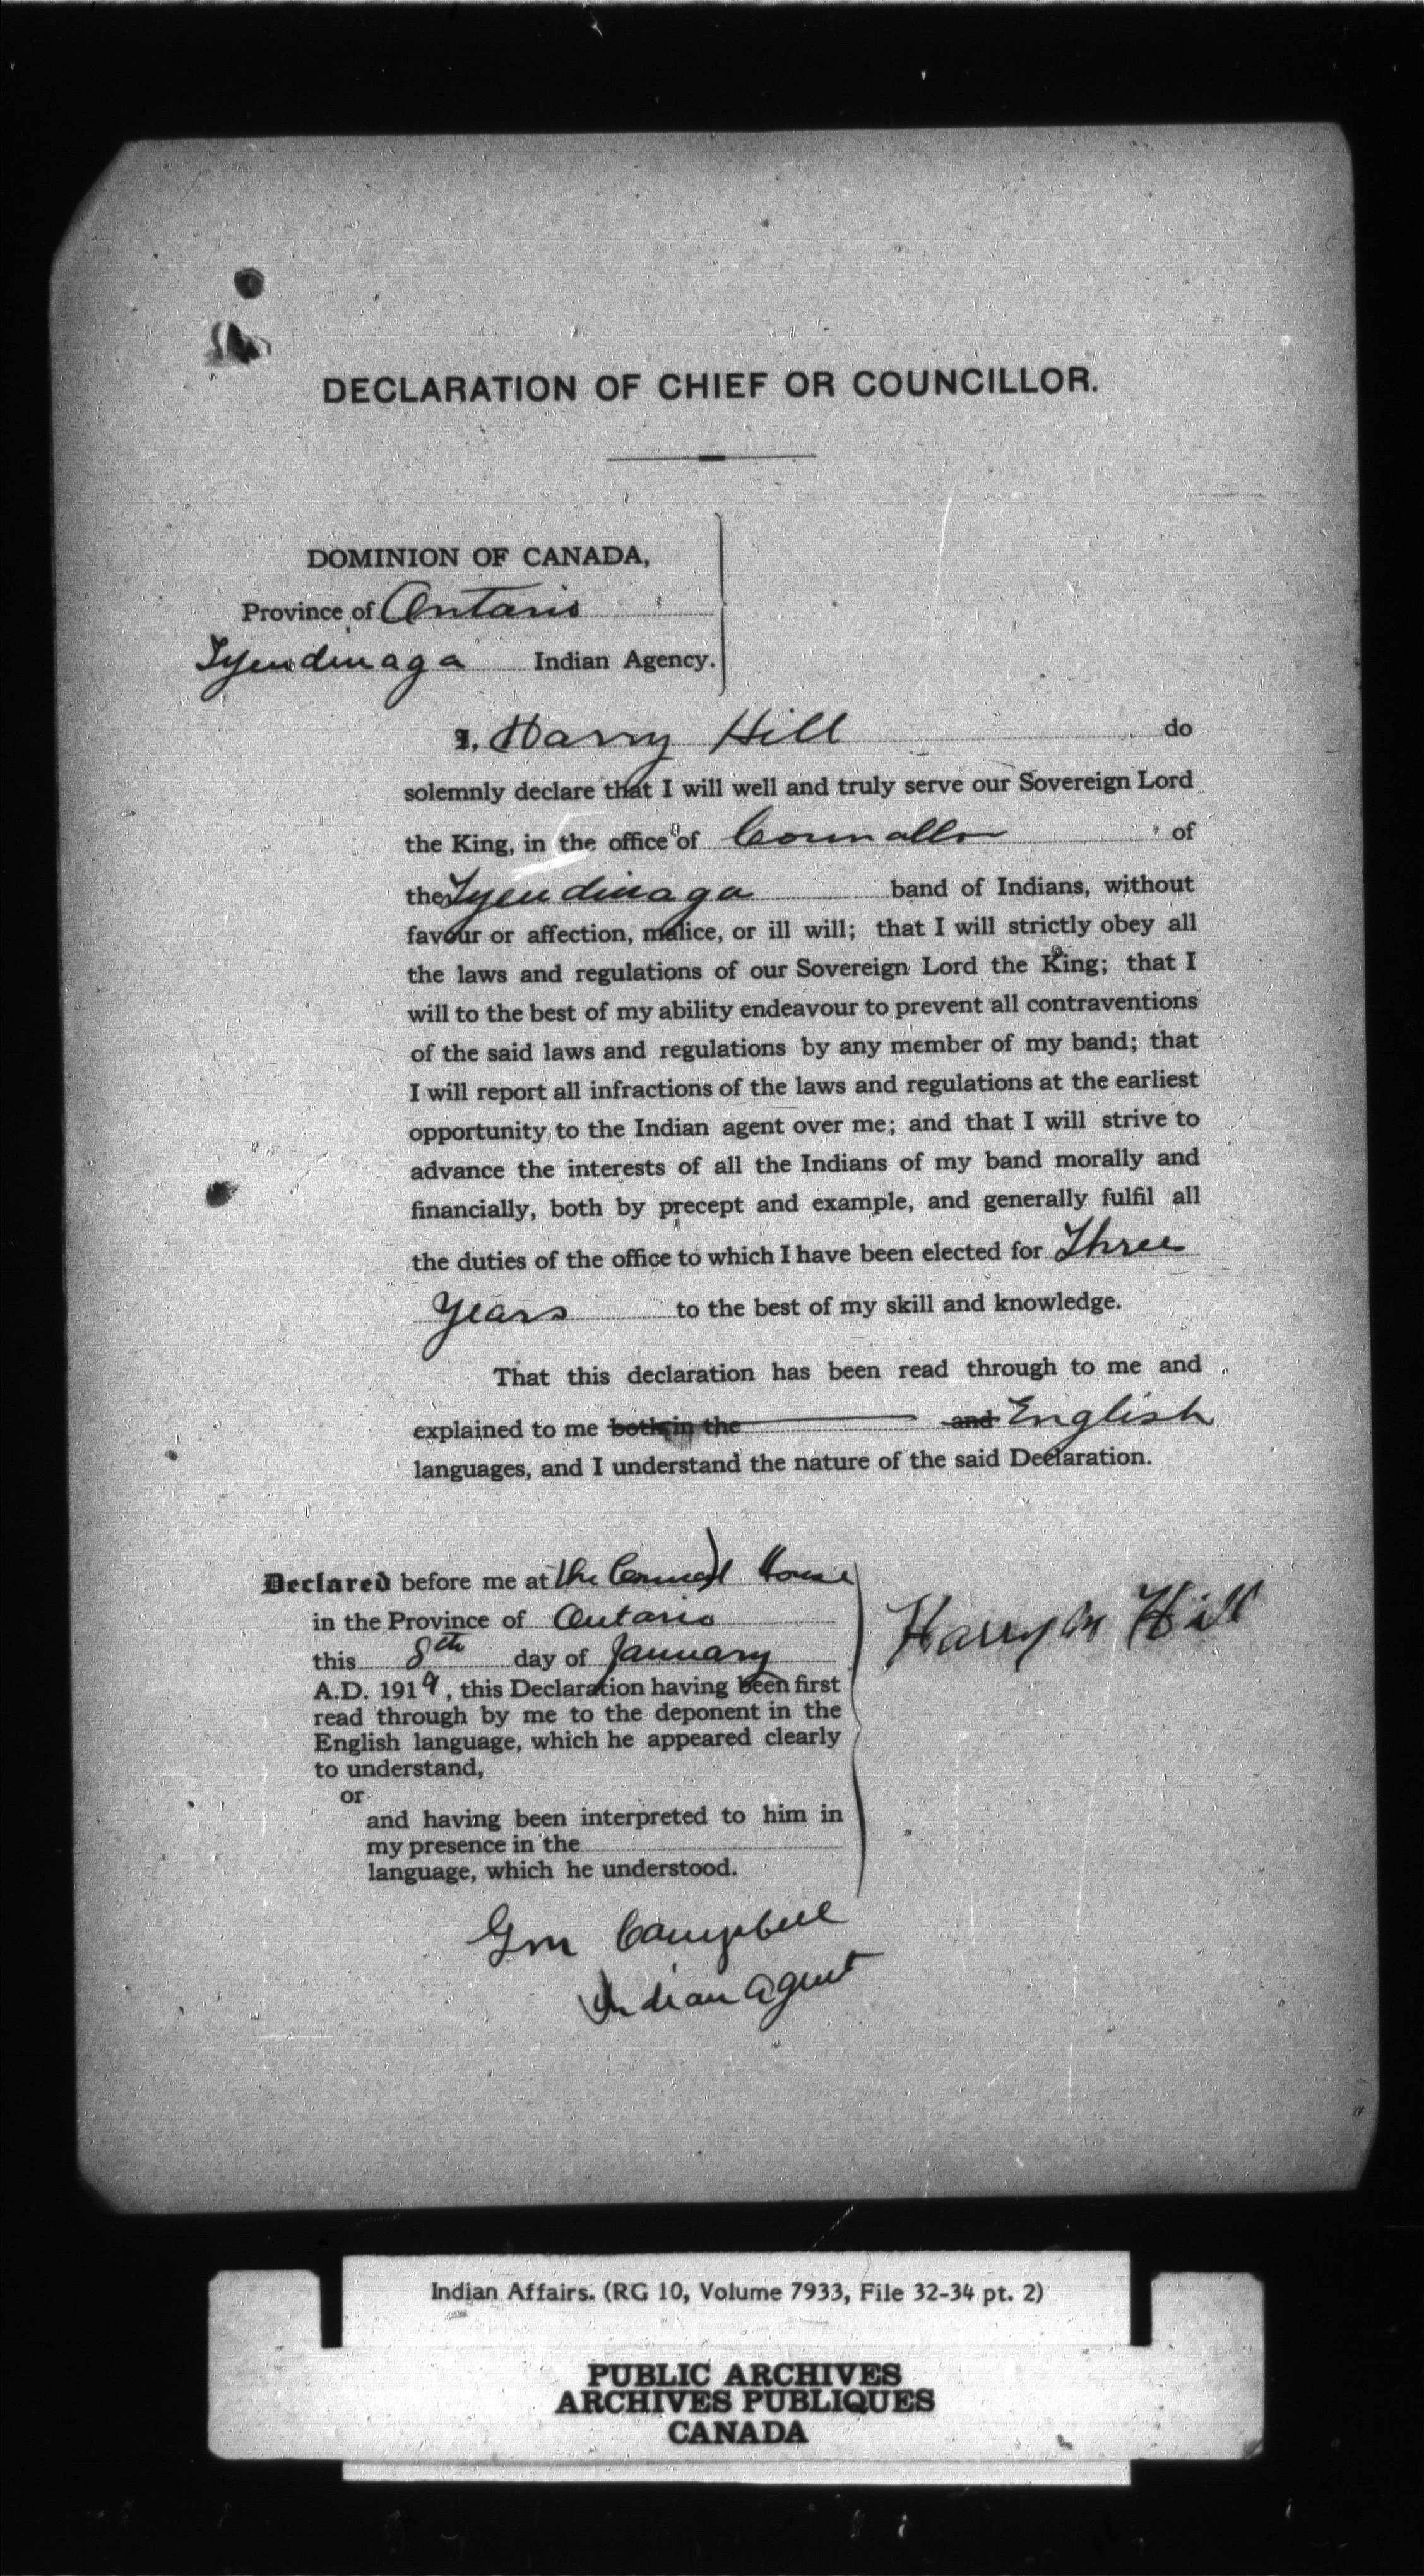 DECLARATION OF CHIEF OR COUNCILLOR.
DOMINION OF CANADA,
Province of Ontario
Tyendinaga Indian Agency.
I, Harry Hill do
solemnly declare that I will well and truly serve our Sovereign Lord
the King, in the office of Councillor of
the Tyendinaga band of Indians, without
favour or affection, malice, or ill will; that I will strictly obey all
the laws and regulations of our Sovereign Lord the King; that I
will to the best of my ability endeavour to prevent all contraventions
of the said laws and regulations by any member of my band; that
I will report all infractions of the laws and regulations at the earliest
opportunity to the Indian agent over me; and that I will strive to
advance the interests of all the Indians of my band morally and
financially, both by precept and example, and generally fulfil all
the duties of the office to which I have been elected for Three
Years to the best of my skill and knowledge.
That this declaration has been read through to me and
explained to me both in the and English
languages, and I understand the nature of the said Declaration.
Declared before me at the Council House
in the Province of Ontario
this 8th day of January
A.D. 1919, this Declaration having been first
read through by me to the deponent in the
English language, which he appeared clearly
to understand,
or
and having been interpreted to him in
my presence in the
language, which he understood.
Harry Hill
Gm Campbell
Indian Agent
Indian Affairs. (RG 10, Volume 7933, File 32-34 pt. 2)
PUBLIC ARCHIVES
ARCHIVES PUBLIQUES
CANADA